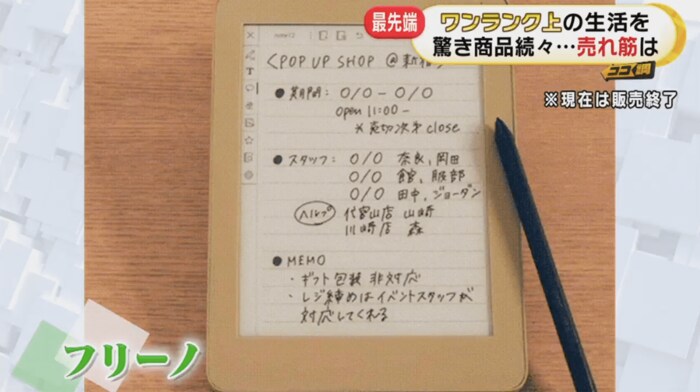 最先端
ワンランク上の生活を
驚き商品続々…売れ筋は
ココ調
※現在は販売終了
<POP UP SHOP @新宿>
● 期間: 0/0 - 0/0
open 11:00 -
※売切次第 close
● スタッフ: 0/0 奈良、岡田
0/0 館、服部
0/0 田中、ジョーダン
ヘルプ 代官山店 山崎
川崎店 森
● MEMO
・ギフト包装 非対応
・レジ締めはイベントスタッフが
対応してくれる
フリーノ